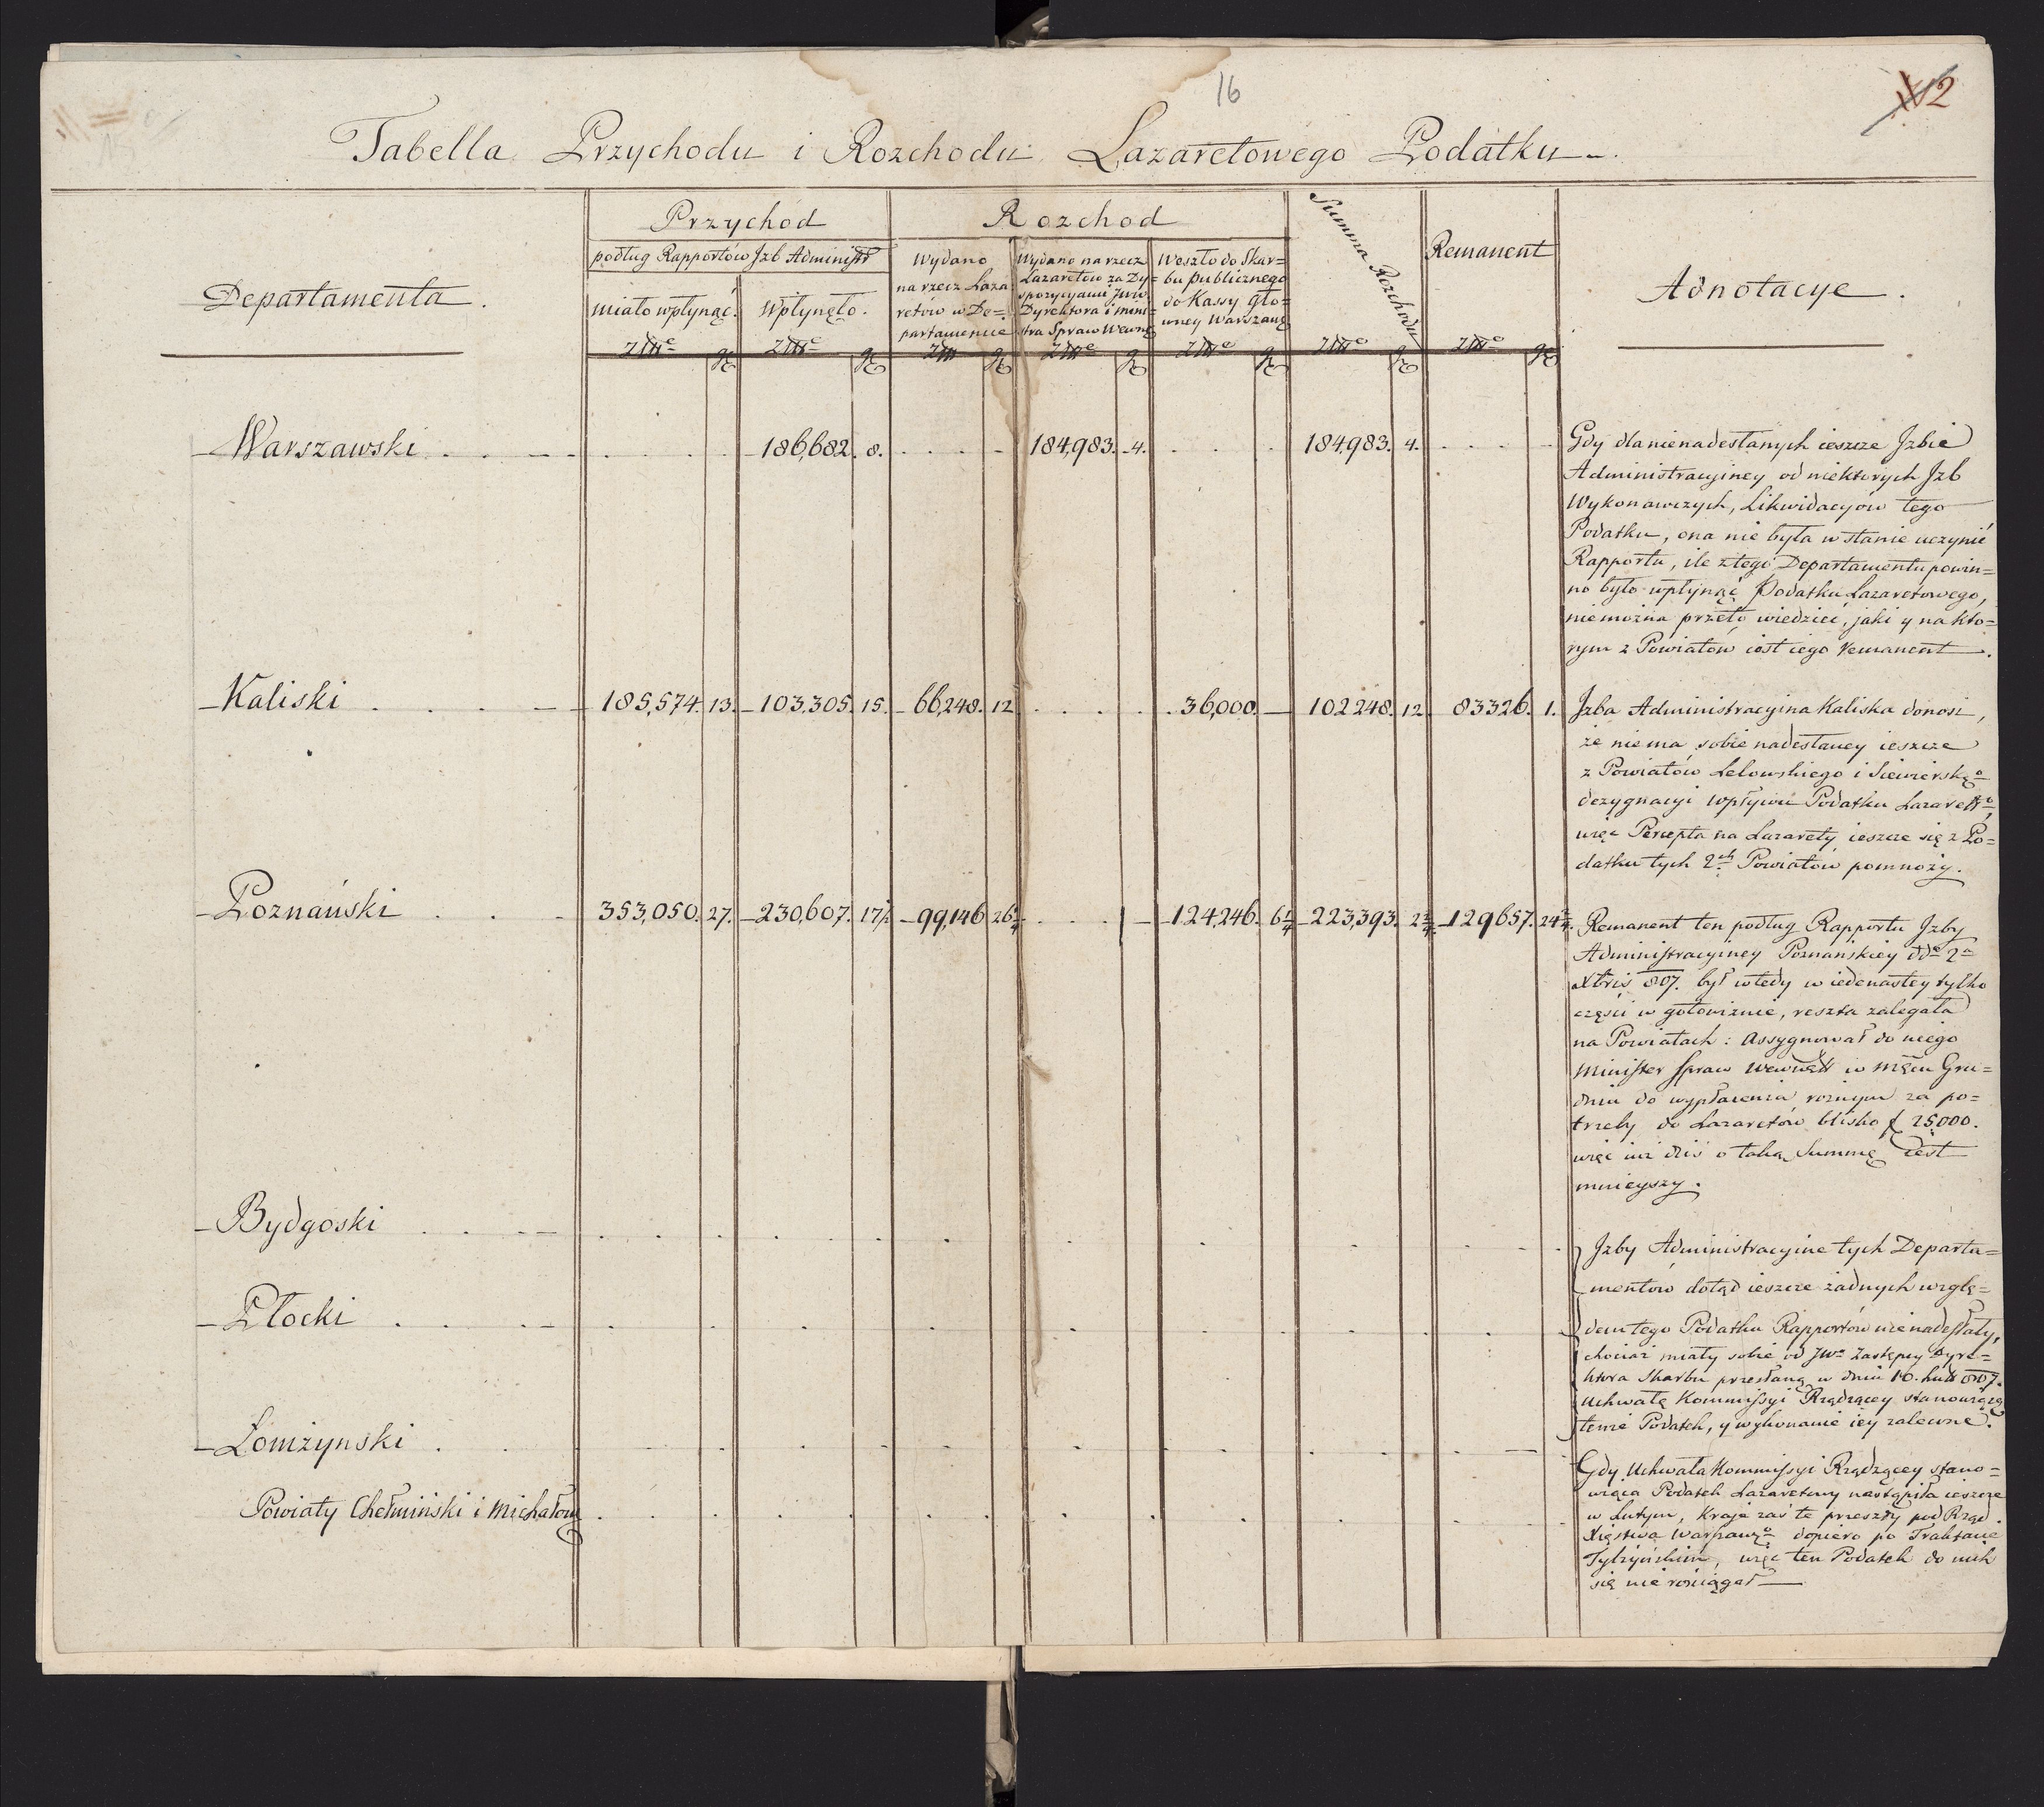 16
12
Tabella Przychodu i Rozchodu Lazaretowego Podatku
Departamenta
Przychod
podług Rapportów Jzb Administr
miało wpłynąć.
Wpłynęło.
Rozchod
Wydano
na rzecz Laza
retów w De=
partamencie
Wydano na rzecz
Lazaretow za Dy=
spozycyami JWW
Dyrektora i mini=
stra Spraw Wewnę
Weszło do Skar=
bu publicznego
do Kassy Głó=
wney Warszaws
Summa Rozchodu
Remanent
Adnotacye.
Warszawski 186,682. 8. 184,983. 4. 184,983. 4.
Gdy dla nienadesłanych ieszcze Jzbie
Administracyiney od niektorych Jzb
Wykonawczych, Likwidacyow tego
Podatku, ona nie była w stanie uczynić
Rapportu, ile z tego Departamentu powin=
no było wpłynąć Podatku Lazaretowego,
niemożna przeto wiedzieć, jaki y na któ=
rym z Powiatów iest iego remanent.
Kaliski 185,574. 13. 103,305. 15. 66,248. 12 36,000. 102248. 12. 83326. 1.
Jzba Administracyina Kaliska donosi,
że niema sobie nadesłaney ieszcze
z Powiatów Lelowskiego i Siewierskgo
dezygnacyi wpływu Podatku Lazarettgo,
więc Percepta na Lazarety ieszcze się z Po=
datku tych 2ch Powiatów pomnoży.
Poznański 353,050. 27. 230,607. 17½ 99,146 26¾ 124,246. 6¼ 223,393. 2¾ 129657. 24¼
Remanent ten podług Rapportu Jzby
Administracyiney Poznańskiey dde 2a
Xbris 807. był wtedy w iedenastey tylko
części w gotowiznie, reszta zalegała
na Powiatach: Assygnował do niego
Minister Spraw Wewnętr w Mscu Gru=
dniu do wypłacenia roznym za po=
trzeby do Lazaretów blisko f 25000.
więc iuż dziś o taką Summę iest
mnieyszy.
Bydgoski
Płocki
Łomżynski
Jzby Administracyine tych Departa=
mentów dotąd ieszcze żadnych wzglę=
dem tego Podatku Rapportów nie nadesłały,
chociaż miały sobie od JWo Zastępcy Dyre=
ktora Skarbu przesłaną w dniu 10. 807.
Uchwałę Kommissyi Rządzącey stanowiącą
tenże Podatek, y wykonanie iey zalecone.
Powiaty Chełmiński i Michałow
Gdy Uchwała Kommissyi Rządzącey stano=
wiąca Podatek Lazaretowy nastąpiła ieszcze
w Lutym, Kraje zaś te przeszły pod Rząd
Xięstwa Warszawgo dopiero po Traktacie
Tylżyńskim, więc ten Podatek do nich
się nie rościągał